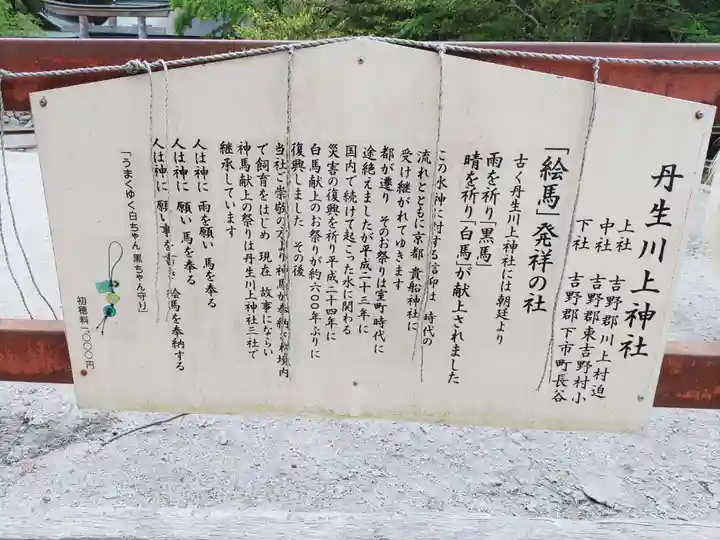 丹生川上神社
上社　吉野郡川上村迫
中社　吉野郡東吉野村小
下社　吉野郡下市町長谷
「絵馬」発祥の社
古く丹生川上神社には朝廷より
雨を祈り「黒馬」
晴を祈り「白馬」が献上されました
この水神に対する信仰は 時代の
流れとともに京都 貴船神社に
受け継がれてゆきます
都が遷り そのお祭りは室町時代に
途絶えましたが平成二十三年に
国内で続けて起こった水に関わる
災害の復興を祈り平成二十四年に
白馬献上のお祭りが約六〇〇年ぶりに
復興しました その後
当社ご崇敬の方より神馬が奉納され境内
で飼育をはじめ 現在 故事にならい
神馬献上の祭りは丹生川上神社三社で
継承しています
人は神に 雨を願い 馬を奉る
人は神に 願い 馬を奉る
人は神に 願い事を書き 絵馬を奉納する
「うまくゆく白ちゃん黒ちゃん守り」
初穂料一〇〇〇円